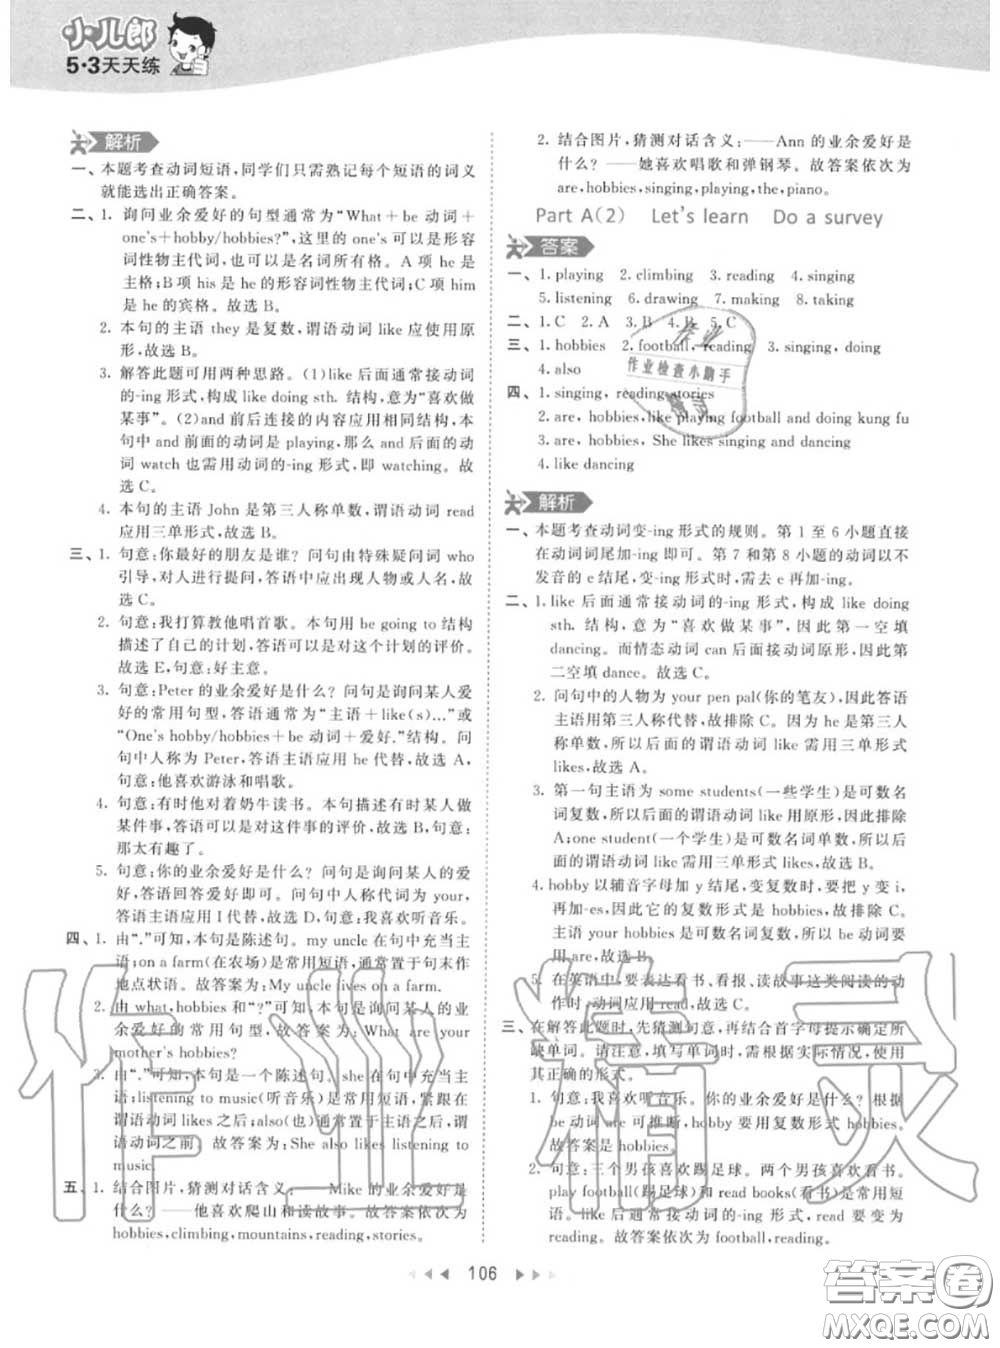 小儿郎
5·3天天练
解析
一、本题考查动词短语,同学们只需熟记每个短语的词义
就能选出正确答案。
二、1. 询问业余爱好的句型通常为“What+be 动词+
one's+hobby/hobbies?”,这里的 one's 可以是形容
词性物主代词,也可以是名词所有格。A 项 he 是
主格;B 项 his 是 he 的形容词性物主代词;C 项 him
是 he 的宾格。故选 B。
2. 本句的主语 they 是复数,谓语动词 like 应使用原
形,故选 B。
3. 解答此题可用两种思路。(1)like 后通常接动词
的-ing 形式,构成 like doing sth. 结构,意为“喜欢做
某事”。(2)and 前后连接的内容应用相同结构,本
句中 and 前面的动词是 playing,那么 and 后面的动
词 watch 也需用动词的-ing 形式,即 watching。故
选 C。
4. 本句的主语 John 是第三人称单数,谓语动词 read
应用三单形式,故选 B。
三、1. 句意:你最好的朋友是谁? 问句由特殊疑问词 who
引导,对人进行提问,答语中应出现人物或人名,故
选 C。
2. 句意:我打算教他唱首歌。本句用 be going to 结构
描述了自己的计划,答语可以是对这个计划的评价。
故选 E,句意:好主意。
3. 句意:Peter 的业余爱好是什么? 问句是询问某人爱
好的常用句型,答语通常为“主语+like(s)…”或
“One's hobby/hobbies+be 动词+爱好.”结构。问
句中人称为 Peter,答语主语应用 he 代替,故选 A,
句意:他喜欢游泳和唱歌。
4. 句意:有时他对着奶牛读书。本句描述有时某人做
某件事,答语可以是对这件事的评价,故选 B,句意:
那太有趣了。
5. 句意:你的业余爱好是什么? 问句是询问某人的爱
好,答语回答爱好即可。问句中人称代词为 your,
答语主语应用 I 代替,故选 D,句意:我喜欢听音乐。
四、1. 由“.”可知,本句是陈述句。my uncle 在句中充当主
语;on a farm(在农场)是常用短语,通常置于句末作
地点状语。故答案为:My uncle lives on a farm.
2. 由 what,hobbies 和“?”可知,本句是询问某人的业
余爱好的常用句型,故答案为:What are your
mother's hobbies?
3. 由“.”可知,本句是一个陈述句。she 在句中充当主
语;listening to music(听音乐)是常用短语,紧跟在
谓语动词 likes 之后;also(也)通常置于主语之后,谓
语动词之前。故答案为:She also likes listening to
music.
五、1. 结合图片,猜测对话含义:——Mike 的业余爱好是
什么? ——他喜欢爬山和读故事。故答案依次为
hobbies,climbing,mountains,reading,stories。
2. 结合图片,猜测对话含义:——Ann 的业余爱好是
什么? ——她喜欢唱歌和弹钢琴。故答案依次为
are,hobbies,singing,playing,the,piano。
Part A(2) Let's learn Do a survey
答案
一、1. playing 2. climbing 3. reading 4. singing
5. listening 6. drawing 7. making 8. taking
二、1. C 2. A 3. B 4. B 5. C
三、1. hobbies 2. football, reading 3. singing, doing
4. also
四、1. singing, reading stories
2. are, hobbies, like playing football and doing kung fu
3. are, hobbies, She likes singing and dancing
4. like dancing
解析
一、本题考查动词变-ing 形式的规则。第 1 至 6 小题直接
在动词词尾加-ing 即可。第 7 和第 8 小题的动词以不
发音的 e 结尾,变-ing 形式时,需去 e 再加-ing。
二、1. like 后面通常接动词的-ing 形式,构成 like doing
sth. 结构,意为“喜欢做某事”,因此第一空填
dancing。而情态动词 can 后面接动词原形,因此第
二空填 dance。故选 C。
2. 问句中的人物为 your pen pal(你的笔友),因此答语
主语用第三人称代替,故排除 C。因为 he 是第三人
称单数,所以后面的谓语动词 like 需用三单形式
likes,故选 A。
3. 第一句主语为 some students(一些学生)是可数名
词复数,所以后面的谓语动词 like 用原形,因此排除
A;one student(一个学生)是可数名词单数,所以后
面的谓语动词 like 需用三单形式 likes,故选 B。
4. hobby 以辅音字母加 y 结尾,变复数时,要把 y 变 i,
再加-es,因此它的复数形式是 hobbies,故排除 C。
主语 your hobbies 是可数名词复数,所以 be 动词要
用 are,故选 B。
5. 在英语中,要表达看书、看报、读故事这类阅读的动
作时,动词应用 read,故选 C。
三、在解答此题时,先猜测句意,再结合首字母提示确定所
缺单词。请注意,填写单词时,需根据实际情况,使用
其正确的形式。
1. 句意:我喜欢听音乐。你的业余爱好是什么? 根据
be 动词 are 可推断,hobby 要用复数形式 hobbies,
故答案是 hobbies。
2. 句意:三个男孩喜欢踢足球。两个男孩喜欢看书。
play football(踢足球)和 read books(看书)是常用短
语。like 后通常接动词的-ing 形式,read 要变为
reading。故答案依次为 football,reading。
106
作业
作业检查小助手
精灵
作业精灵
答案圈
MXQE.COM